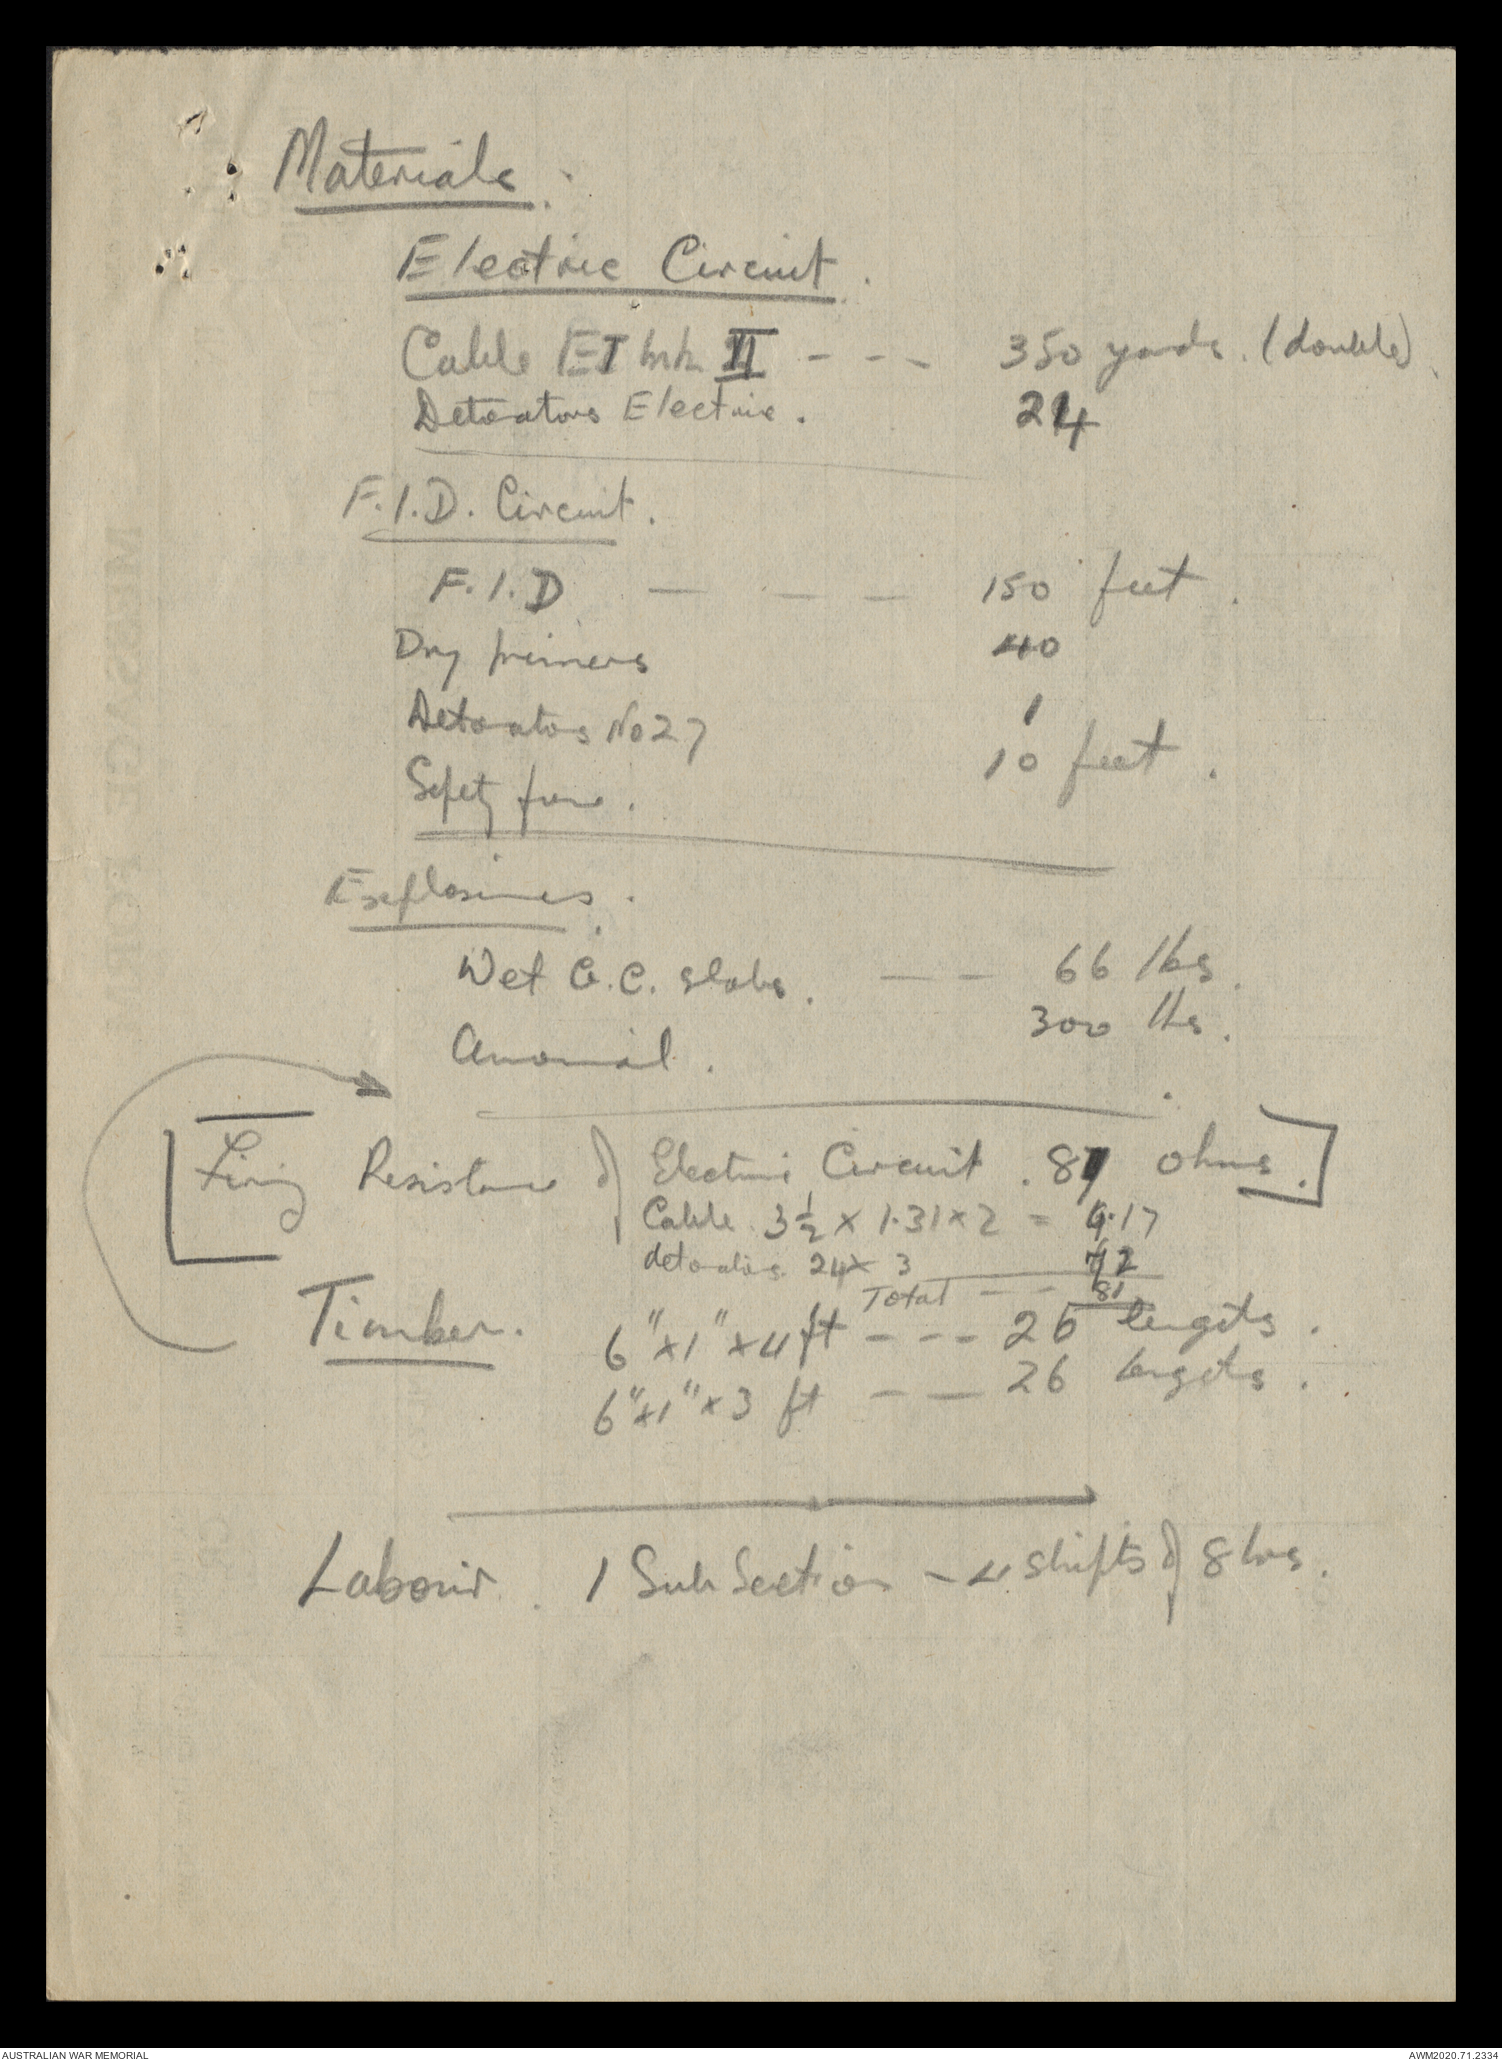 Materials.
Electric Circuit.
Cable E I Mk II - - - 350 yards. (double)
Detonators Electric. 24
F.I.D. Circuit.
F.I.D - - - 150 feet.
Dry primers 40
Detonators No 27 1
Safety fuse. 10 feet.
Explosives.
Wet G.C. slabs. - - 66 lbs.
Ammonal. 300 lbs.
[Firing Resistance of Electric Circuit. 81 ohms.]
Cable. 3½ x 1.31 x 2 = 9.17
detonators. 24 x 3 72
Total - - 81
Timber. 6" x 1" x 4 ft - - - 26 lengths.
6" x 1" x 3 ft - - 26 lengths.
Labour. 1 Sub Section - 4 shifts of 8 hrs.
MESSAGE FORM
AUSTRALIAN WAR MEMORIAL AWM2020.71.2334